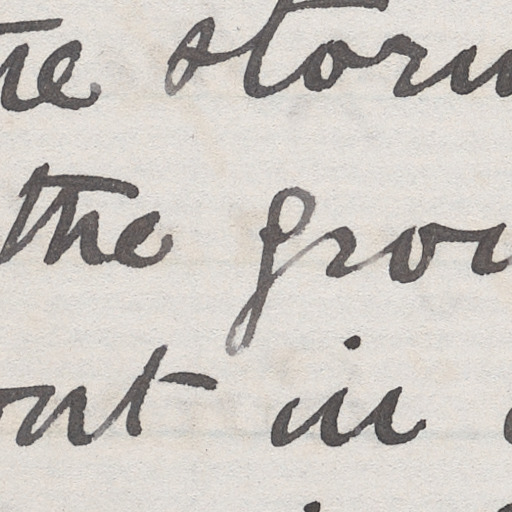 the stor
the gro
ont in